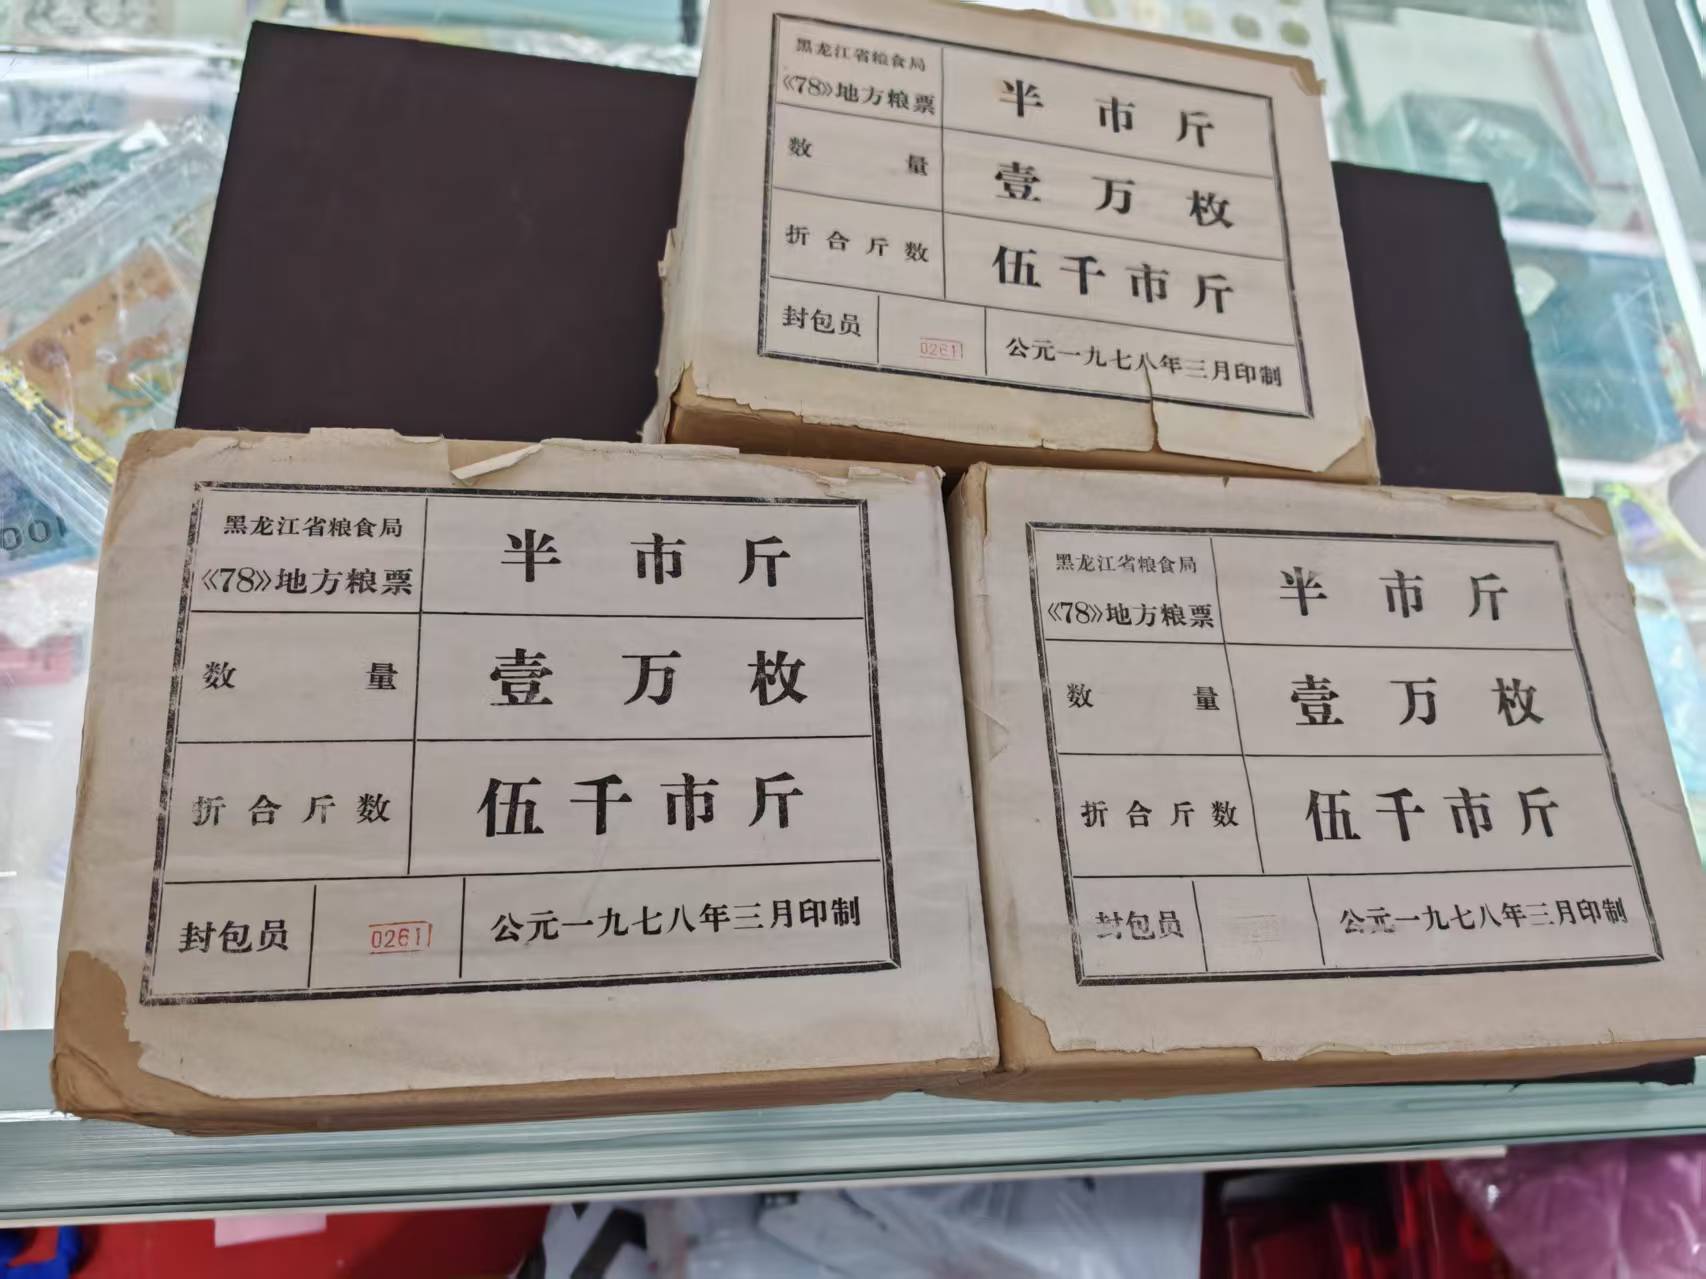 黑龙江省粮食局
《78》地方粮票
半市斤
数量
壹万枚
折合斤数
伍千市斤
封包员
0261
公元一九七八年三月印制
黑龙江省粮食局
《78》地方粮票
半市斤
数量
壹万枚
折合斤数
伍千市斤
封包员
0261
公元一九七八年三月印制
黑龙江省粮食局
《78》地方粮票
半市斤
数量
壹万枚
折合斤数
伍千市斤
封包员
公元一九七八年三月印制